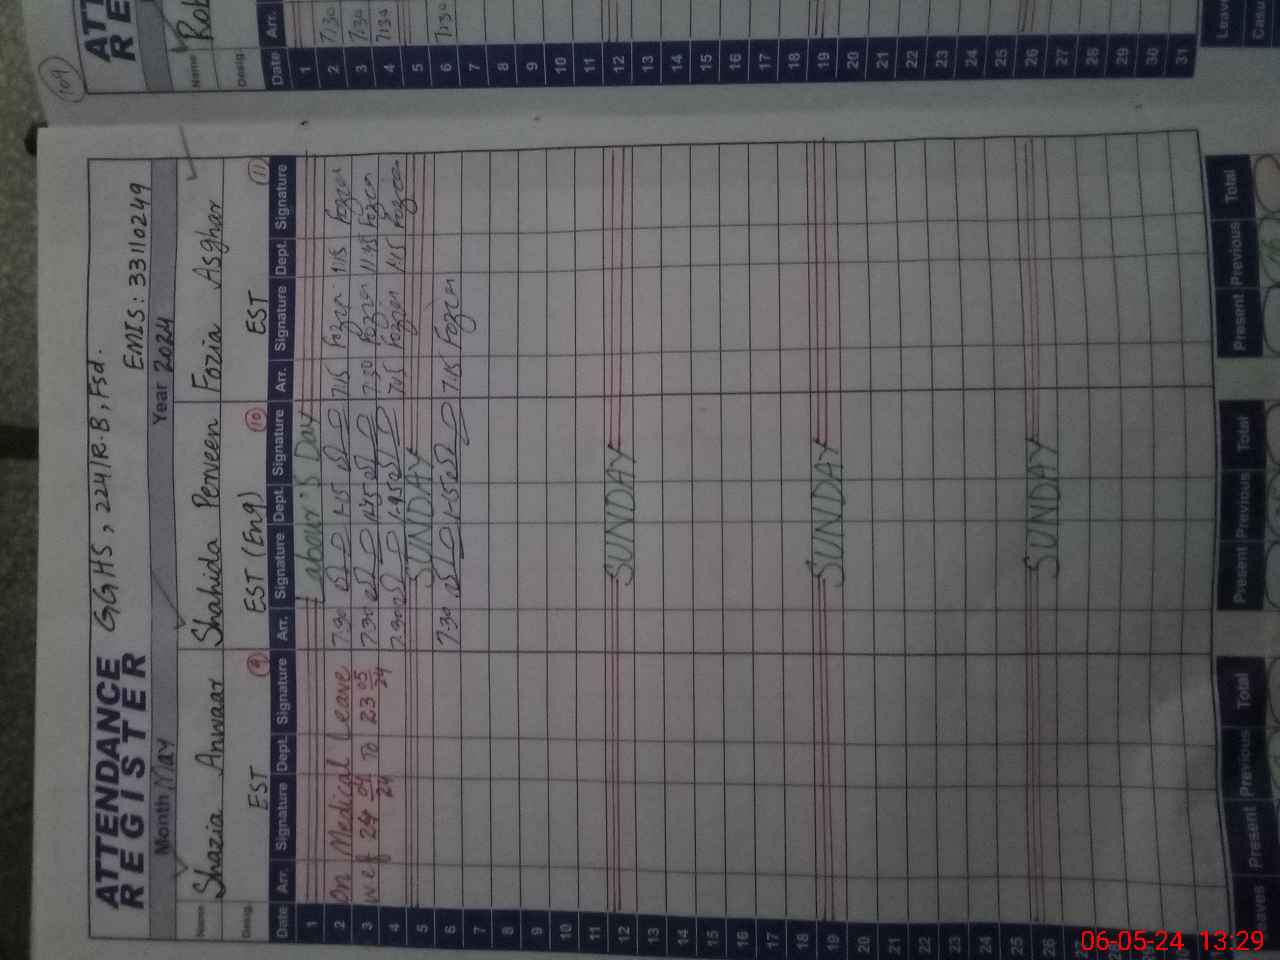 ATTENDANCE REGISTER
GGHS, 224/R.B, Fsd.
EMIS: 33110249
Month May
Year 2024
Name Shazia Anwaar Shahida Perveen Fozia Asghar
Desig. EST (9) EST (Eng) (10) EST (11)
Date Arr. Signature Dept. Signature Arr. Signature Dept. Signature Arr. Signature Dept. Signature
1 Labour's Day
2 On Medical Leave 7:30 1:15 7:15 Fozia 1:15 Fozia
3 wef 24 04 24 To 23 05 24 7:30 7:30 Fozia 11:45 Fozia
4 7:30 7:15 Fozia 1:15 Fozia
5 SUNDAY
6 7:30 1:15 7:15 Fozia
7
8
9
10
11
12 SUNDAY
13
14
15
16
17
18
19 SUNDAY
20
21
22
23
24
25
26 SUNDAY
27
Leaves Present Previous Total Present Previous Total Present Previous Total
109
ATT
RE
Name Rob
Desig.
Date Arr.
1
2 7:30
3 7:30
4 7:30
5
6 7:30
7
8
9
10
11
12
13
14
15
16
17
18
19
20
21
22
23
24
25
26
27
28
29
30
31
Leave
Casu
06-05-24 13:29